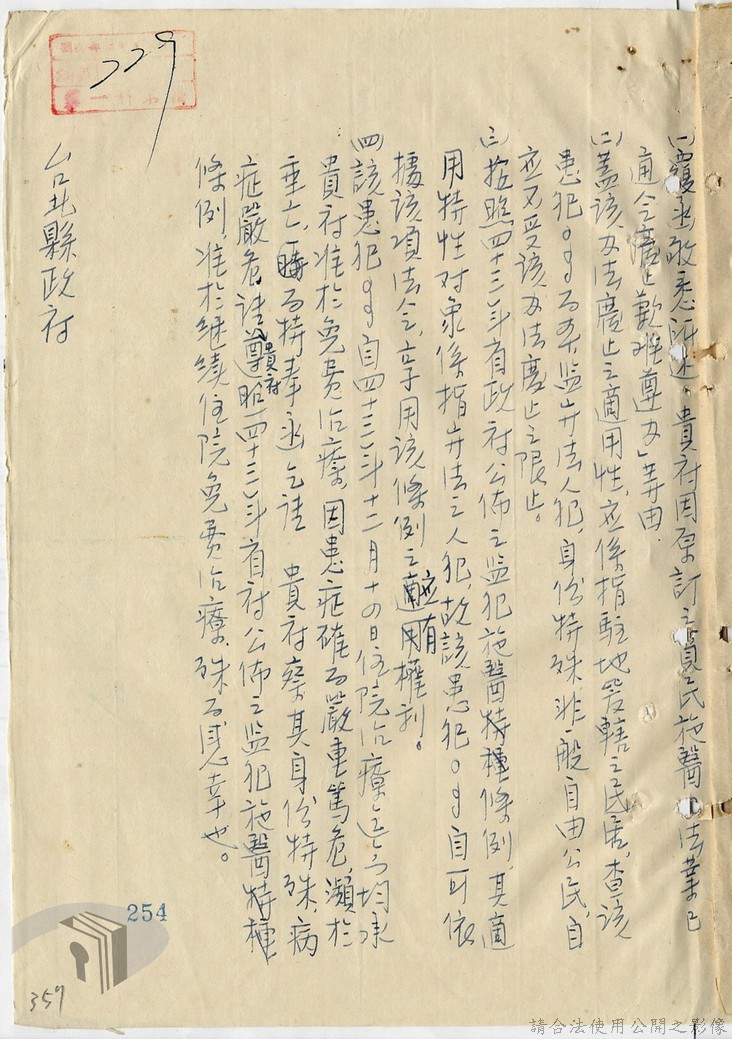 (一)覆函敬悉所述，貴府因原訂之貧民施醫 法業已
通令廢止歉难尊办」等由．
(二)蓋該办法廢止之適用性，应係指駐地 轄之民居，查該
患犯○○乃 监弁法人犯，身份特殊非一般自由公民，自
应不受該办法廢止之限止。
(三)按照四十三年省政府公佈之监犯施醫特種條例，其適
用特性对象係指弁法之人犯，故該患犯○○自可依
據該項法令享用該條例之應有權利。
(四)該患犯○○自四十三年十二月十四日住院治療迄今均承
貴府准於免费治療，因患症確乃嚴重篤危，瀕於
垂亡， 乃特奉函乞請 貴府察其身份特殊，病
症嚴危，請貴府遵照四十三年省府公佈之监犯施醫特種
條例，准於继续住院免费治療，殊为感幸也。
台北縣政府
229
254
359
請合法使用公開之影像